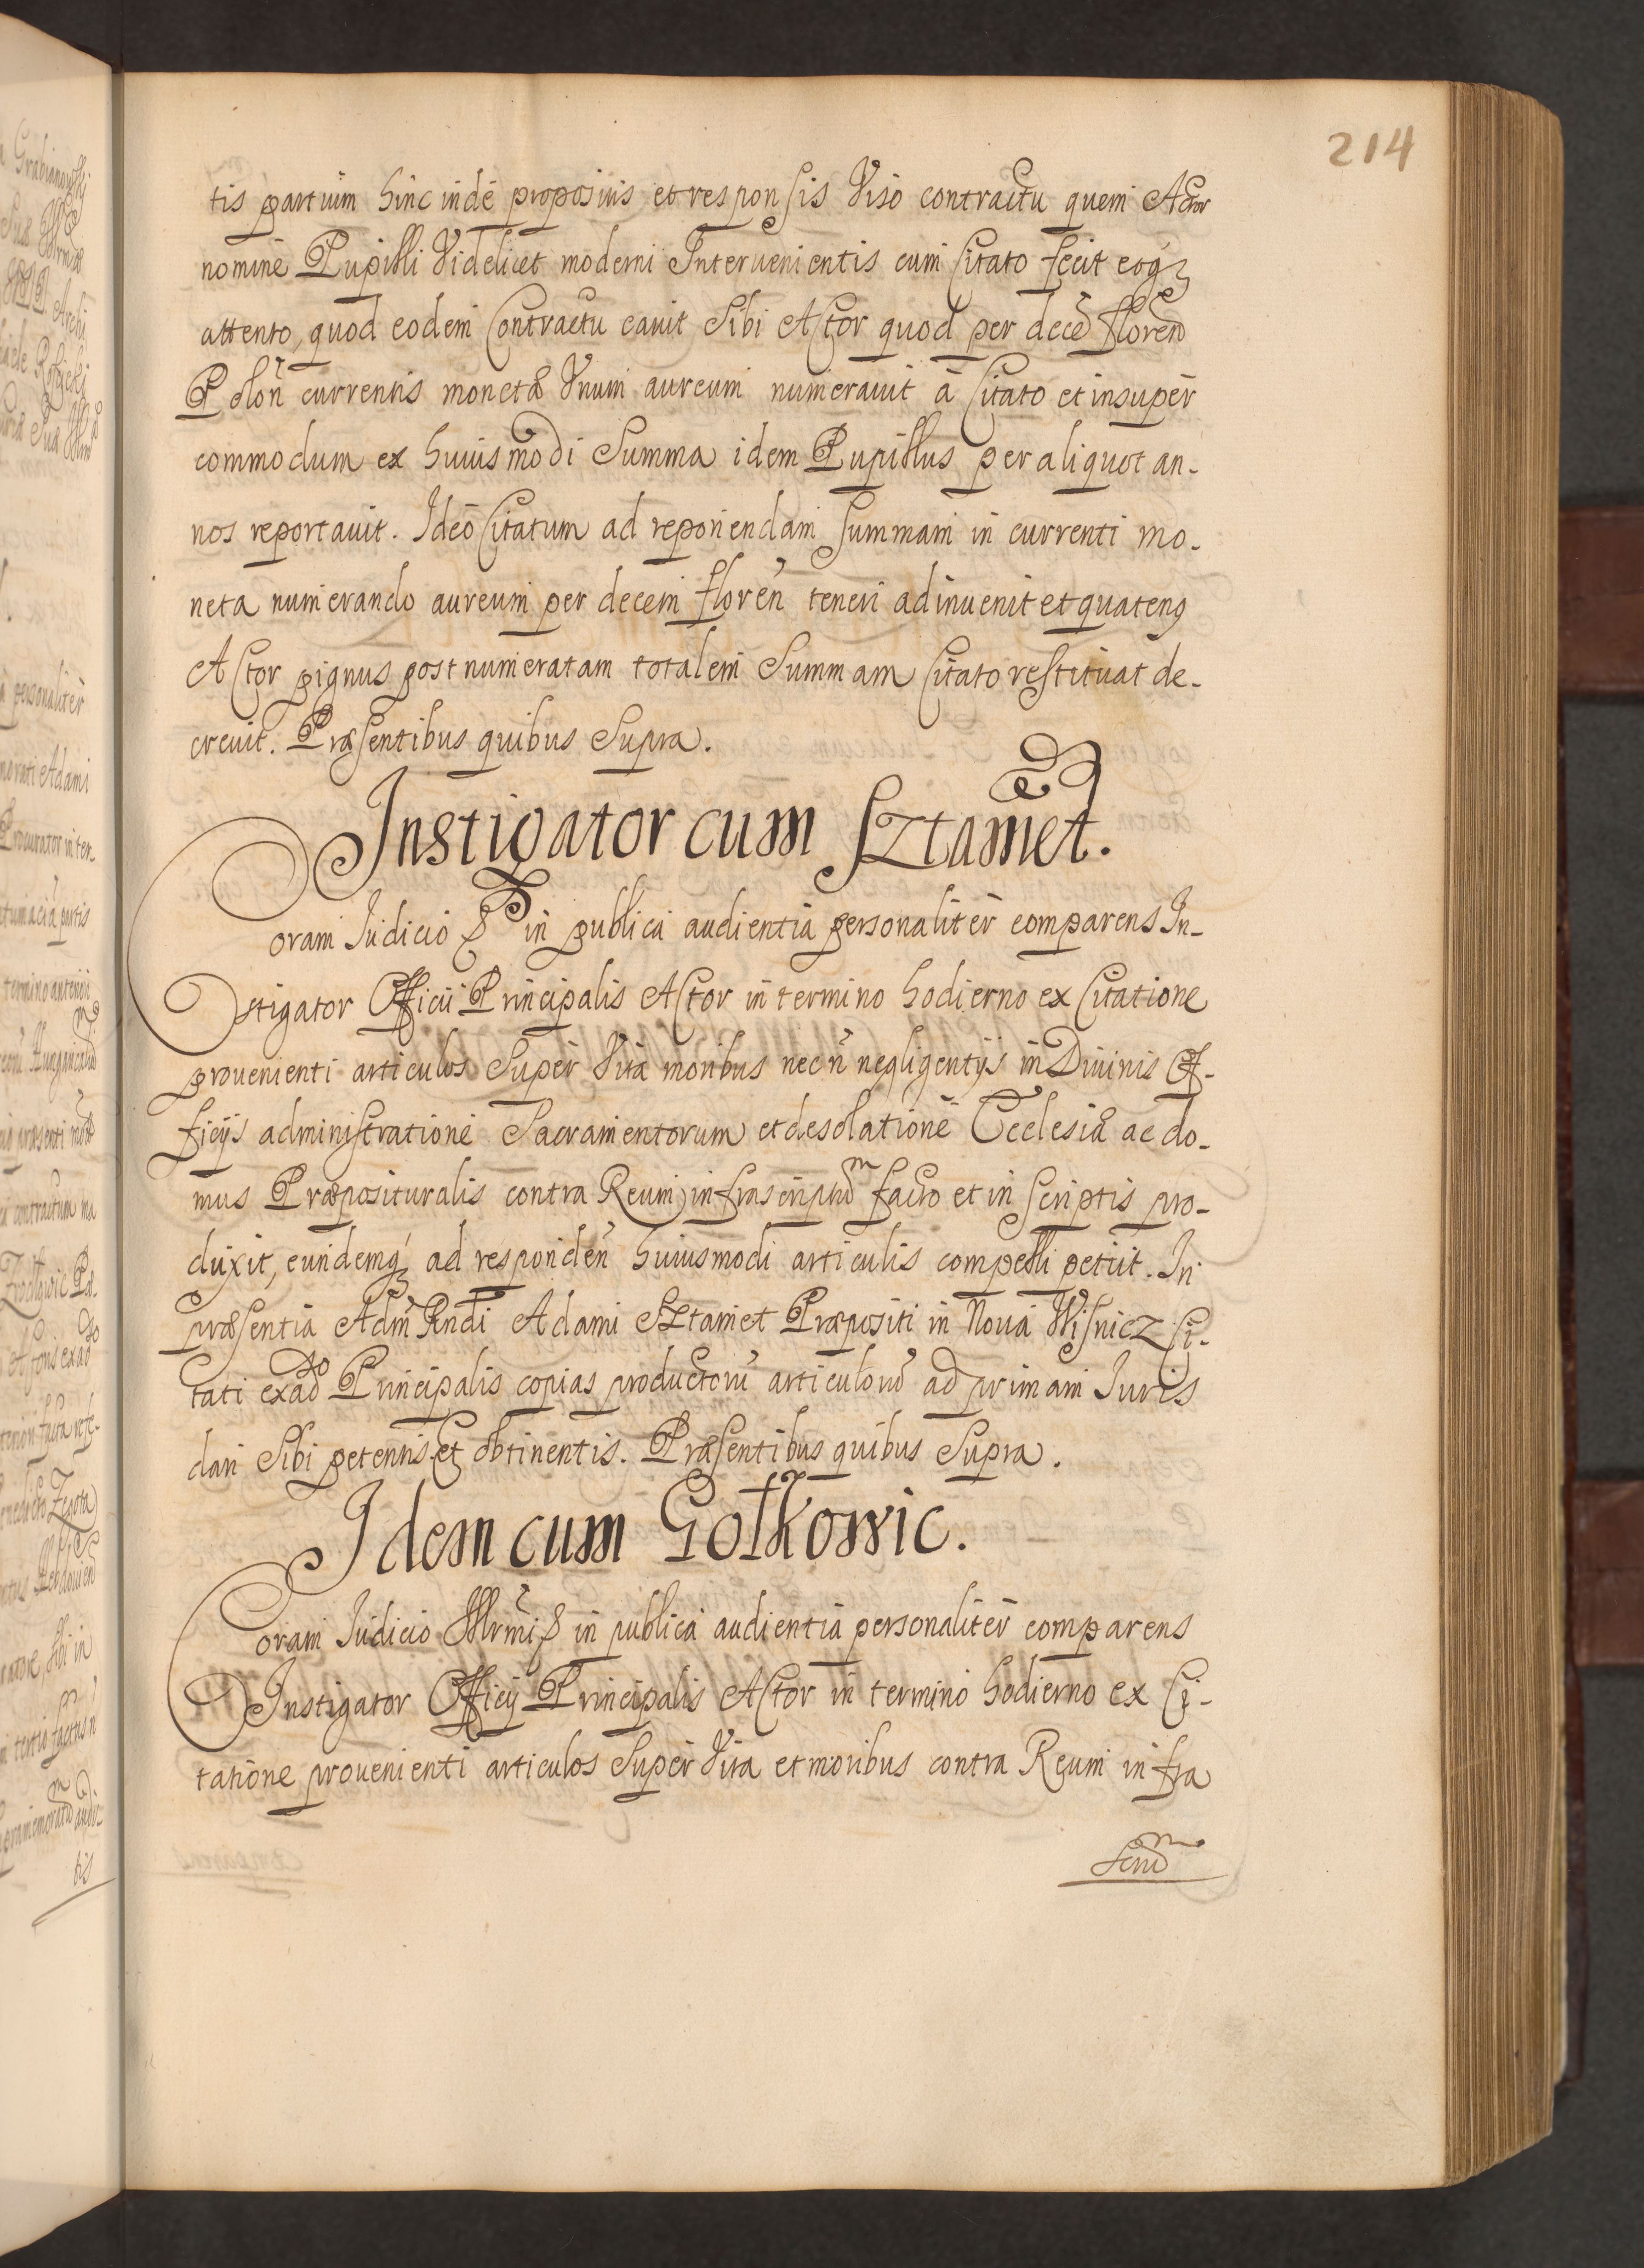 214
tis partium hinc inde propositis et responsis Viso contractu quem Actor
nomine Pupilli Videlicet moderni Intervenientis cum Citato fecit eoq;
attento, quod eodem Contractu cauit Sibi Actor quod per decē floren
Polon currentis monetæ Vnum aureum numerauit à Citato et insuper
commodum ex huiusmodi Summa idem Pupillus per aliquot an-
nos reportauit. Ideo Citatum ad reponendam Summam in currenti mo-
neta numerando aureum per decem floren teneri adinuenit et quatenq
Actor pignus post numeratam totalem Summam Citato restituat de-
creuit. Præsentibus quibus Supra.
Instigator cum Sztamet.
Coram Iudicio in publica audientia personaliter comparens In-
stigator Officii Principalis Actor in termino hodierno ex Citatione
prouenienti articulos Super Vita moribus necn negligentijs in Diuinis Of-
ficijs administratione Sacramentorum et desolatione Ecclesiæ ac do-
mus Præposituralis contra Reum infrascriptū facto et in scriptis pro-
duxit, eundemq; ad responden huiusmodi articulis compelli petiit. In
præsentia Adm Rndi Adami Sztamet Præpositi in Noua Wisnicz Ci-
tati ex adso Principalis copias productorū articulorū ad primam Iuris
dari Sibi petentis et obtinentis. Præsentibus quibus Supra.
Idem cum Gołkowic.
Coram Iudicio Illrmi in publica audientia personaliter comparens
Instigator Officij Principalis Actor in termino hodierno ex Ci-
tatione prouenienti articulos Super Vita et moribus contra Reum infra